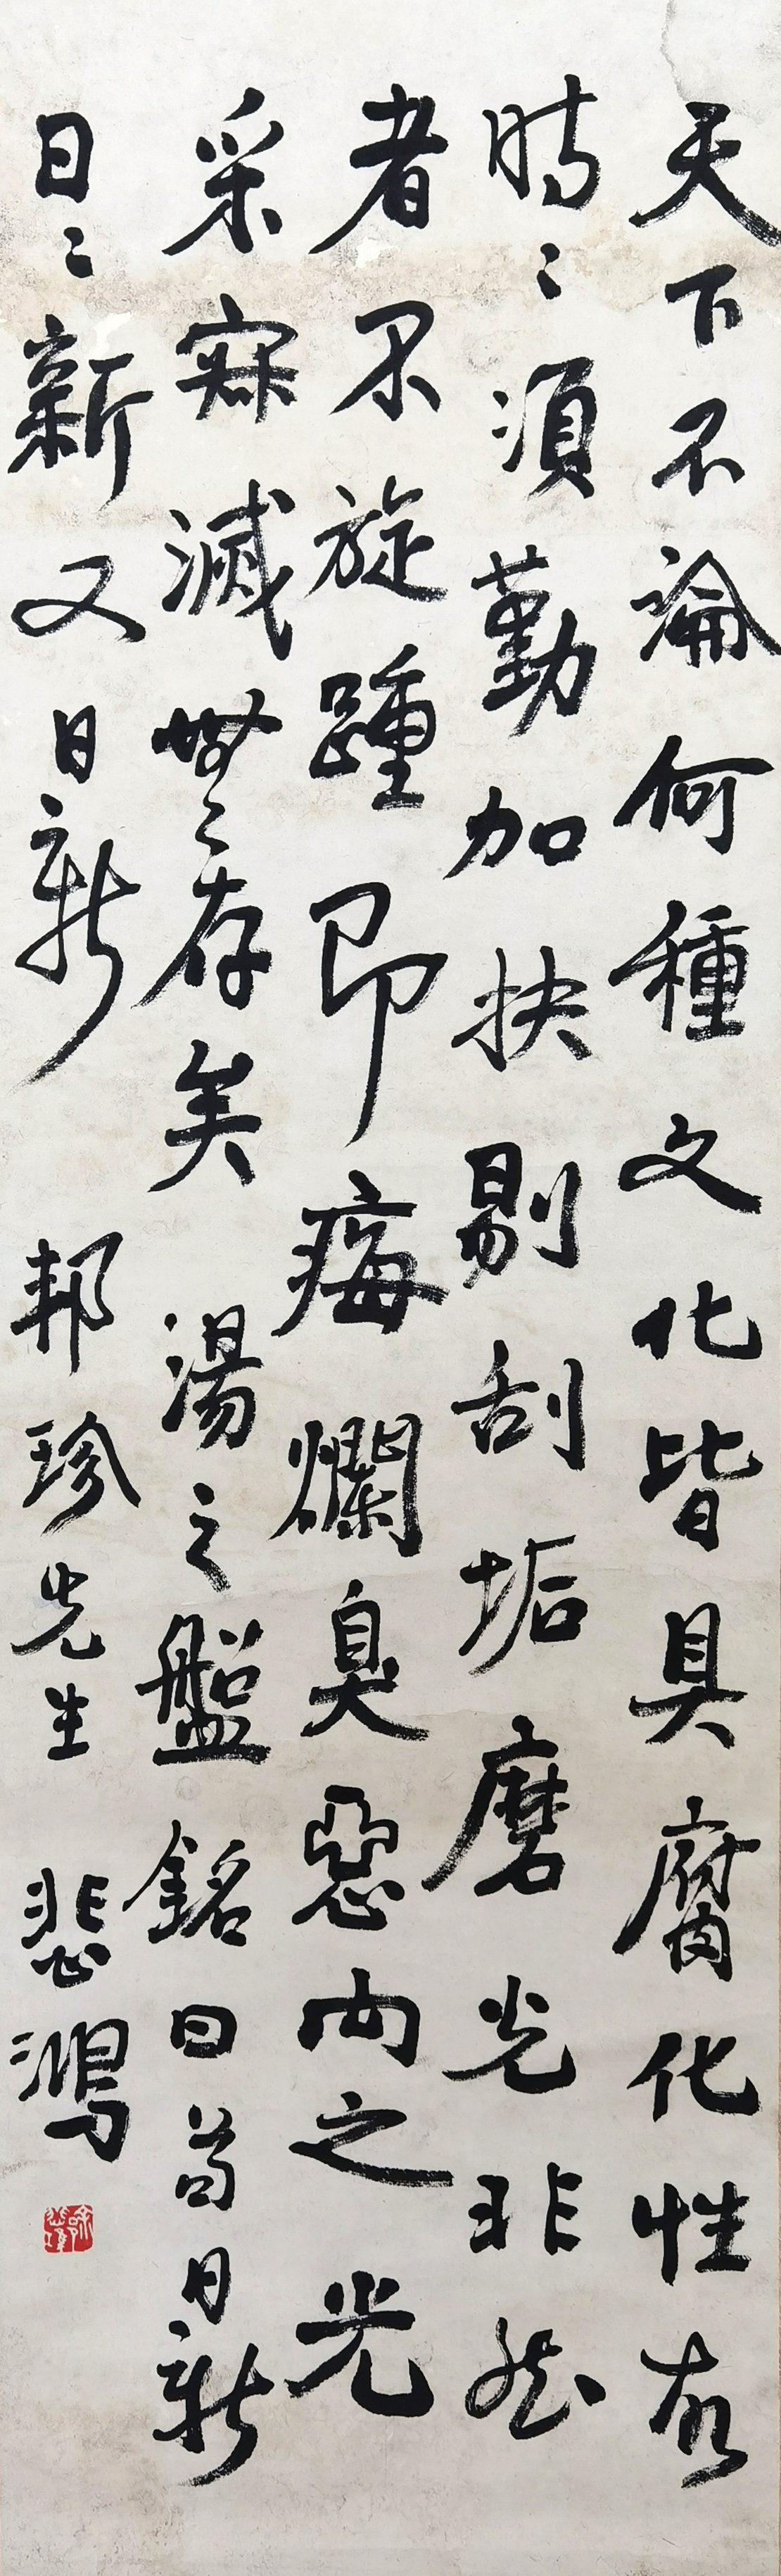 天下不論何種文化皆具腐化性故
時〻須勤加抉剔刮垢磨光非然
者不旋踵即痗爛臭惡向之光
采寂滅無〻存矣湯之盤銘曰苟日新
日〻新又日新 邦珍先生 悲鴻